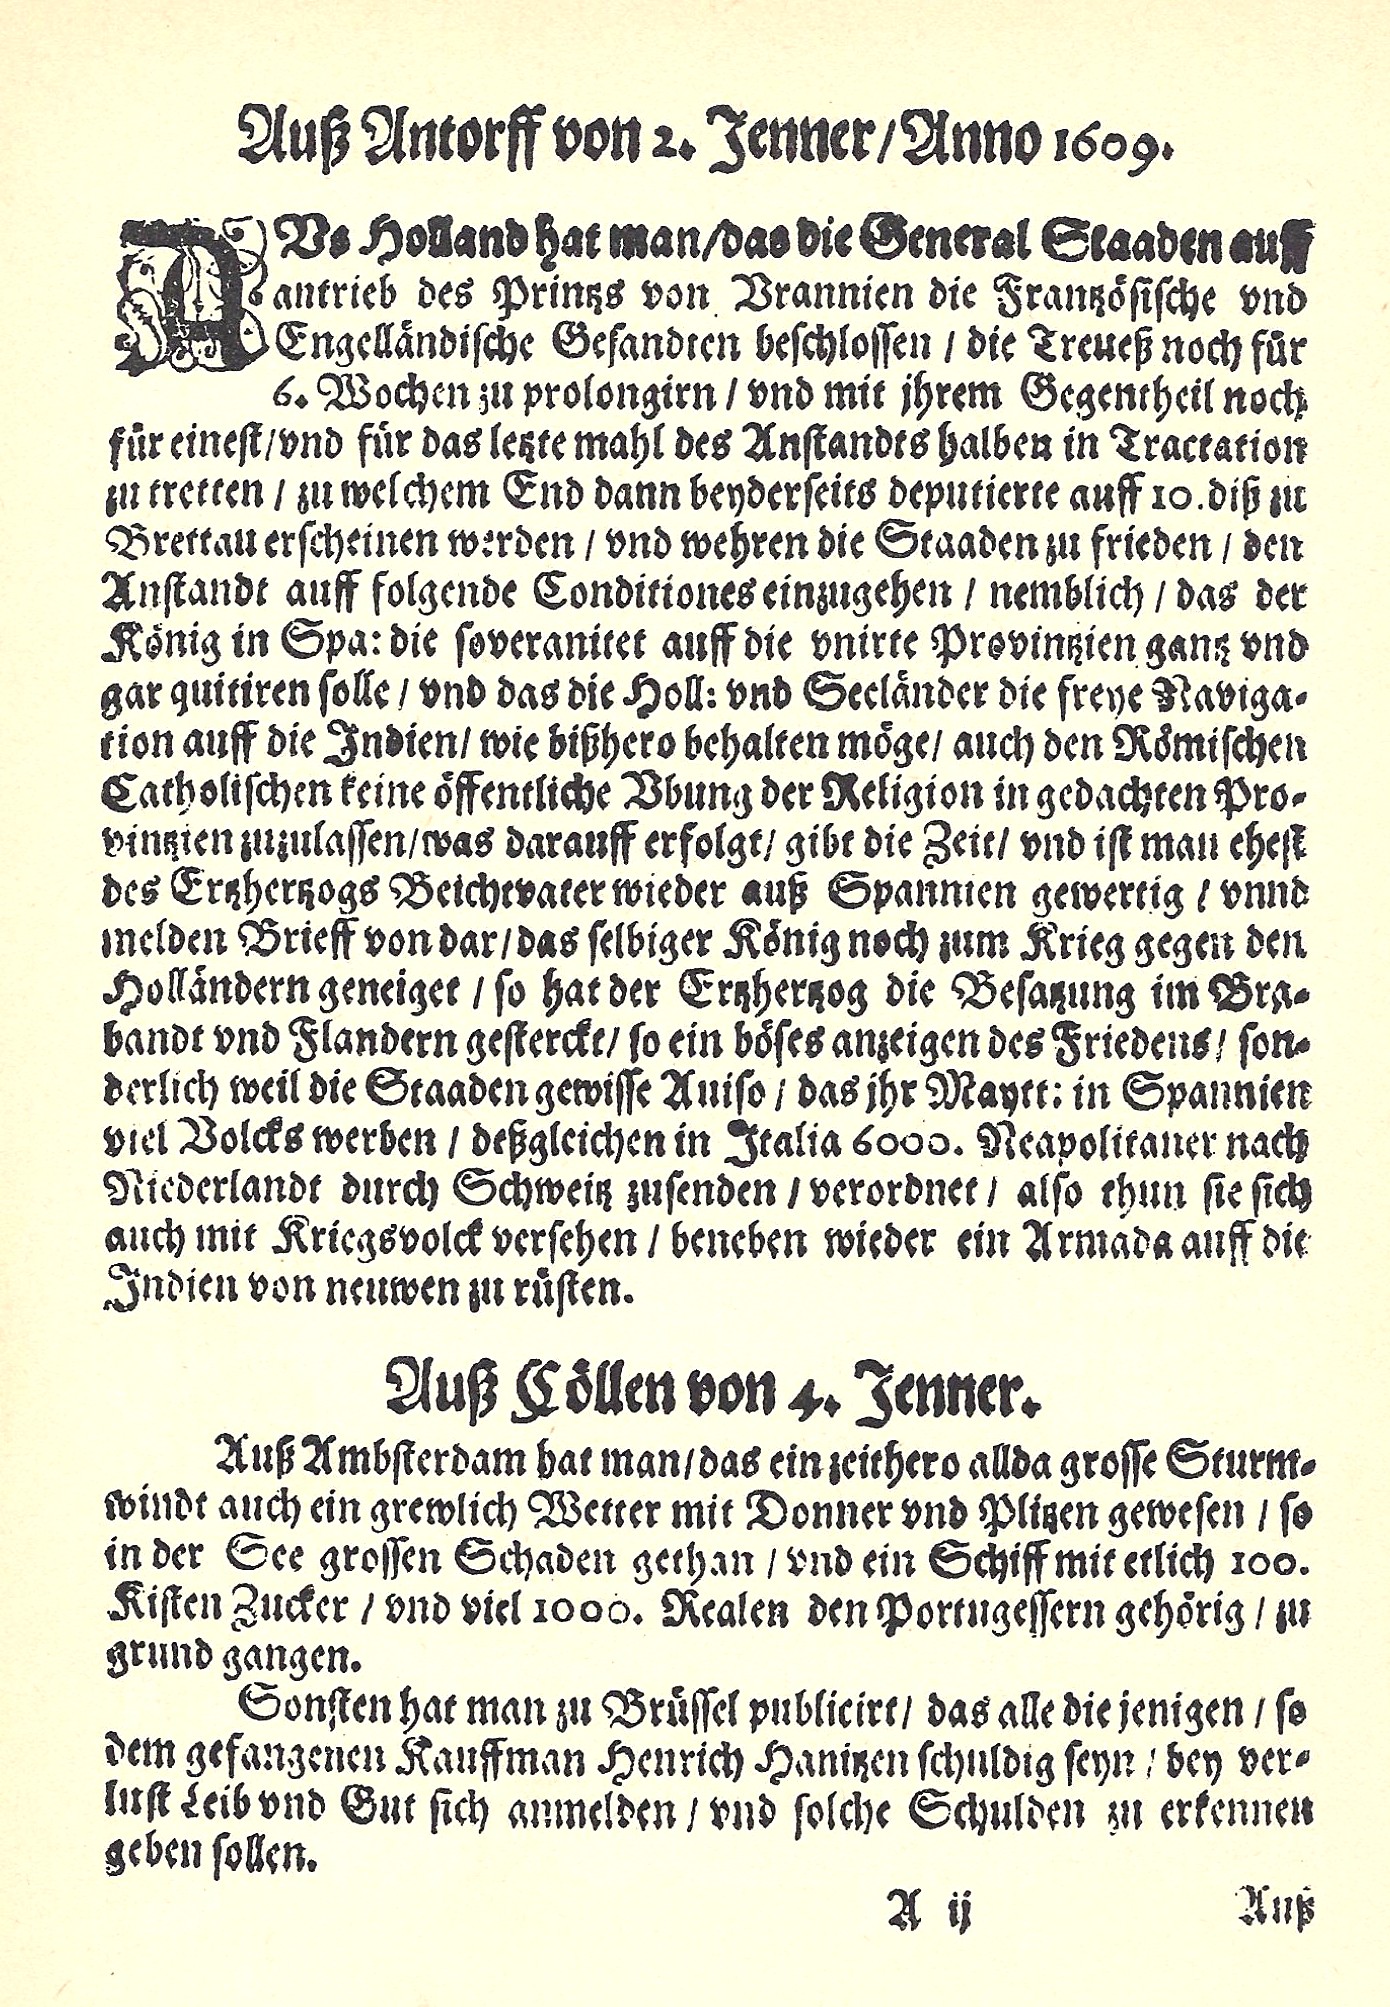 Auß Antorff von 2. Jenner/Anno 1609.
AVs Holland hat man/das die General Staaden auff
antrieb des Printzs von Vrannien die Frantzösische vnd
Engelländische Gesandten beschlossen / die Treueß noch für
6. Wochen zu prolongirn / vnd mit jhrem Gegentheil noch
für einest/vnd für das letzte mahl des Anstandts halben in Tractation
zu tretten / zu welchem End dann beyderseits deputierte auff 10. diß zu
Brettau erscheinen werden / vnd wehren die Staaden zu frieden / den
Anstandt auff folgende Conditiones einzugehen / nemblich / das der
König in Spa: die soveranitet auff die vnirte Provintzien gantz vnd
gar quitiren solle / vnd das die Holl: vnd Seeländer die freye Naviga-
tion auff die Indien/ wie bißhero behalten möge/ auch den Römischen
Catholischen keine öffentliche Vbung der Religion in gedachten Pro-
vintzien zuzulassen/was darauff erfolgt/ gibt die Zeit/ vnd ist man ehest
des Ertzhertzogs Beichtvater wieder auß Spannien gewertig / vnnd
melden Brieff von dar/das selbiger König noch zum Krieg gegen den
Holländern geneiget / so hat der Ertzhertzog die Besatzung im Bra-
bandt vnd Flandern gesterckt/ so ein böses anzeigen des Friedens/ son-
derlich weil die Staaden gewisse Auiso / das jhr Maytt: in Spannien
viel Volcks werben / deßgleichen in Italia 6000. Neapolitaner nach
Niederlandt durch Schweitz zusenden / verordnet / also thun sie sich
auch mit Kriegsvolck versehen / beneben wieder ein Armada auff die
Indien von neuwen zu rüsten.
Auß Cöllen von 4. Jenner.
Auß Ambsterdam hat man/das ein zeithero allda grosse Sturm-
windt auch ein grewlich Wetter mit Donner vnd Plitzen gewesen / so
in der See grossen Schaden gethan / vnd ein Schiff mit etlich 100.
Kisten Zucker / vnd viel 1000. Realen den Portugessern gehörig / zu
grund gangen.
Sonsten hat man zu Brüssel publicirt/ das alle die jenigen / so
dem gefangenen Kauffman Henrich Hanitzen schuldig seyn / bey ver-
lust Leib vnd Gut sich anmelden / vnd solche Schulden zu erkennen
geben sollen.
A ij Auß